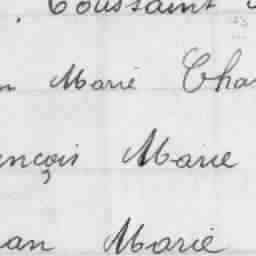 Toussaint
Marie Cha
ançois Marie
an Marie